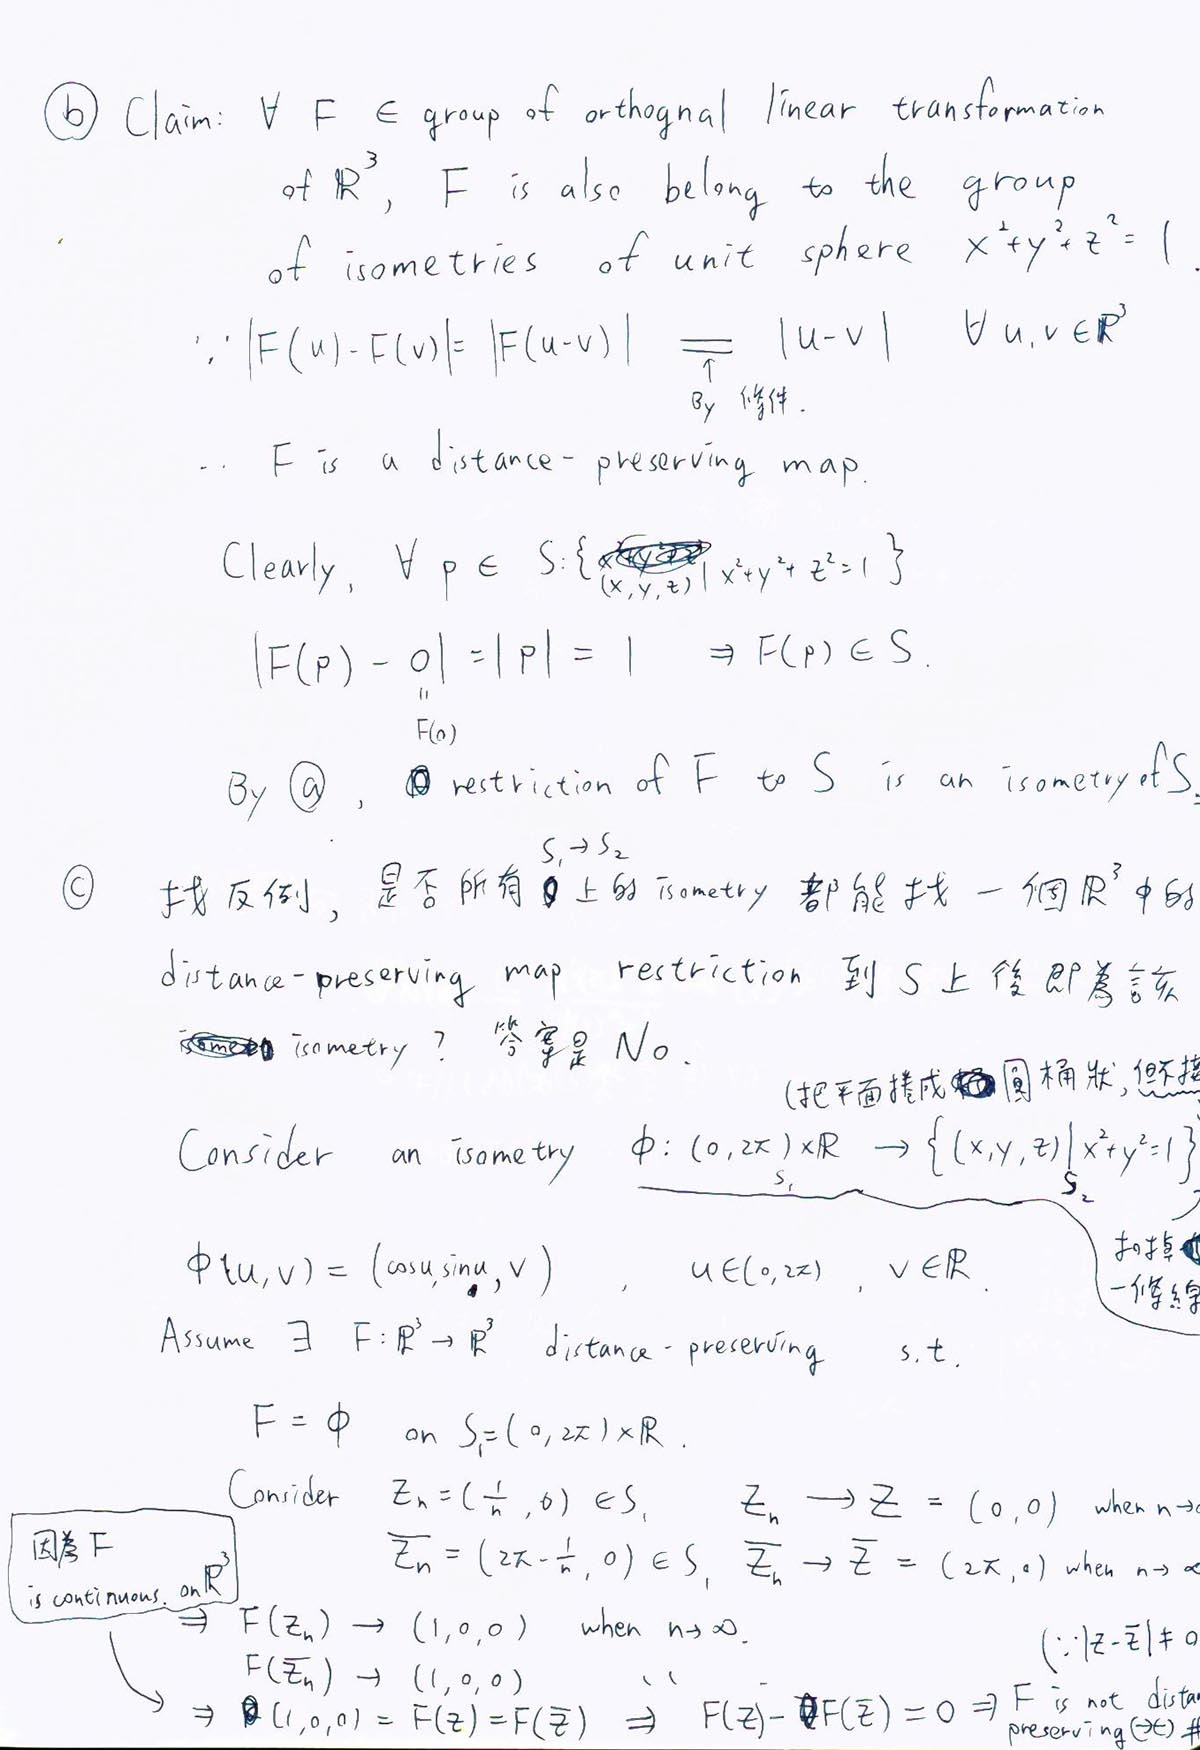 ⓑ Claim: ∀ F ∈ group of orthognal linear transformation
of ℝ³, F is also belong to the group
of isometries of unit sphere x²+y²+z²=1.
∵ |F(u)-F(v)|=|F(u-v)| = |u-v| ∀ u,v∈ℝ³
↑
By 條件.
∴ F is a distance-preserving map.
Clearly, ∀ p ∈ S:{(x,y,z)|x²+y²+z²=1}
|F(p)-0|=|p|=1 ⇒ F(p)∈S.
"
F(0)
By ⓐ, restriction of F to S is an isometry of S.
S₁→S₂
ⓒ 找反例, 是否所有上的 isometry 都能找一個ℝ³中的
distance-preserving map restriction 到 S 上後即為該
isometry? 答案是 No.
(把平面捲成圓桶狀, 但不接
Consider an isometry φ: (0,2π)×ℝ → {(x,y,z)|x²+y²=1}
S₁ S₂
扣掉
一條線
φ(u,v)=(cosu,sinu,v), u∈(0,2π), v∈ℝ.
Assume ∃ F:ℝ³→ℝ³ distance-preserving s.t.
F=φ on S₁=(0,2π)×ℝ.
Consider Zₙ=(1/n,0)∈S₁ Zₙ→Z=(0,0) when n→
Z̄ₙ=(2π-1/n,0)∈S₁ Z̄ₙ→Z̄=(2π,0) when n→∞
因為 F
is continuous. on ℝ³
⇒ F(Zₙ)→(1,0,0) when n→∞.
F(Z̄ₙ)→(1,0,0) "
(∵|Z-Z̄|≠0
⇒ (1,0,0)=F(Z)=F(Z̄) ⇒ F(Z)-F(Z̄)=0 ⇒ F is not dista
preserving (→←) #